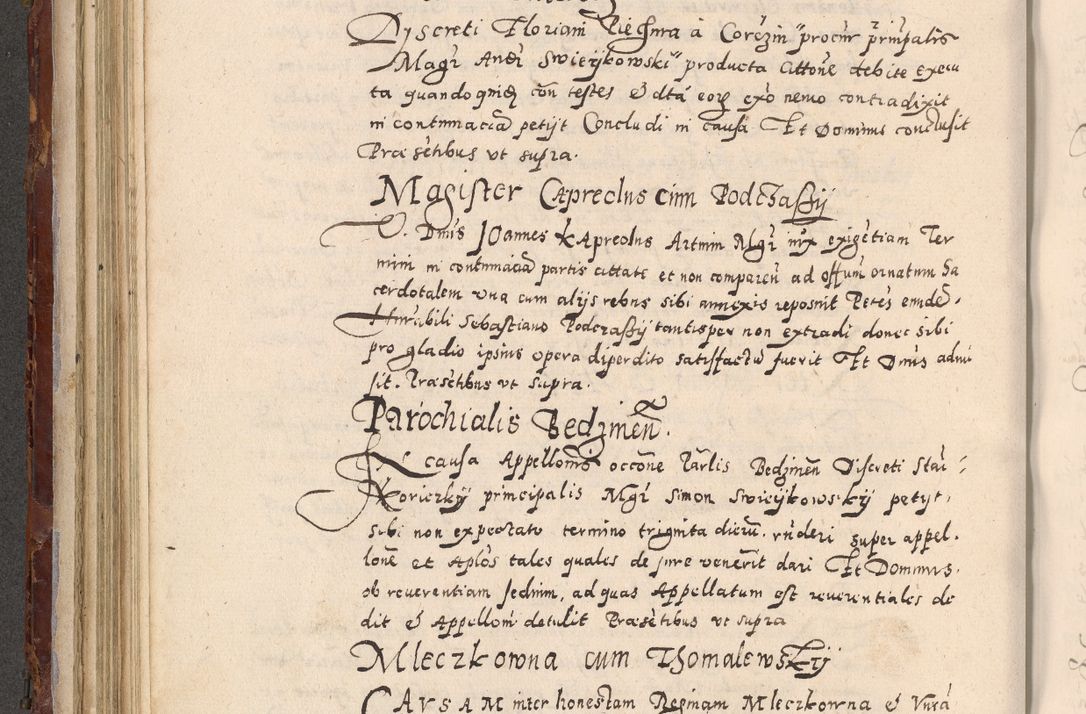 Dyscreti Floriani Ziegma a Corczin procur prinpalis
Magr Andr Swieijkowski producta Cittone debite execu
ta quandoquidq con testes & dta eorq exo nemo contradixit
in contumacia petyt Concludi in causa Et Dominus conclusit
Præsētibus vt supra.
Magister Capreolus cum Podczaßij
D. Dnus Joannes Kapreolus Artium Mgr inx exigētiam Ter
mini in contumaciā partis cittate et non comparen ad offum ornatum Sa
cerdotalem vna cum alijs rebus sibi annexis reposuit Petēs eundē
Hnrabili Sebastiano Podczaßij tantisper non extradi donec sibi
pro gladio ipsius opera diperdito satisfactū fuerit Et Dnus admi
sit. Præsētibus vt supra.
Parochialis Bedzinēn.
In causa Appellonis occōne Parlis Bedzinēn Discreti Stai
Koriczkij principalis Mgr Simon Swieijkowskij petyt,
sibi non expectato termino triginta dierū. rnderi super appel.
lone et Aplos tales quales de jure venerit dari Et Dominus.
ob reuerentiam sedium, ad quas Appellatum est reuerentiales de
dit & Appellom detulit Præsētibus vt supra
Mleczkowna cum Thomalewskij
CAVSAM inter honestam Reginam Mleczkowna &